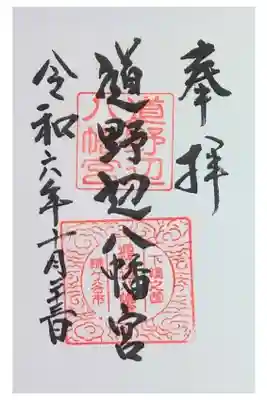 奉拝
道野辺八幡宮
令和六年十月
道野辺
八幡宮
下總之国
鎌ヶ谷市